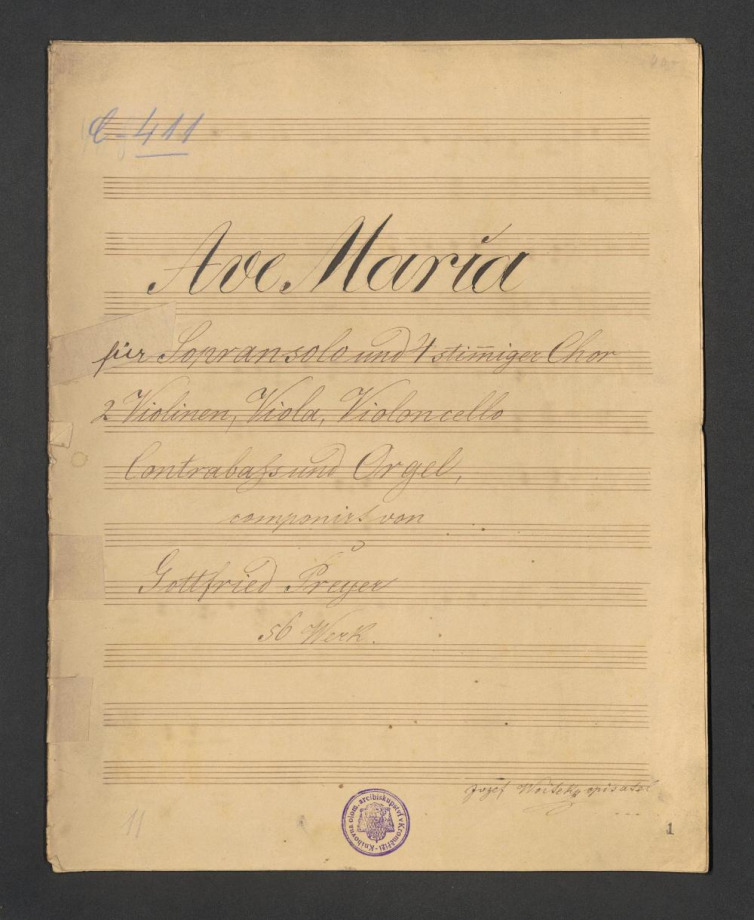 C-411
Ave Maria
für Sopransolo und 4 stim̄iger Chor
2 Violinen, Viola, Violoncello
Contrabaſs und Orgel,
componirt von
Gottfried Preyer
56 Werk.
Jozef
opisatel
Knihovna olom. arcibiskupství v Kroměříži
11
1